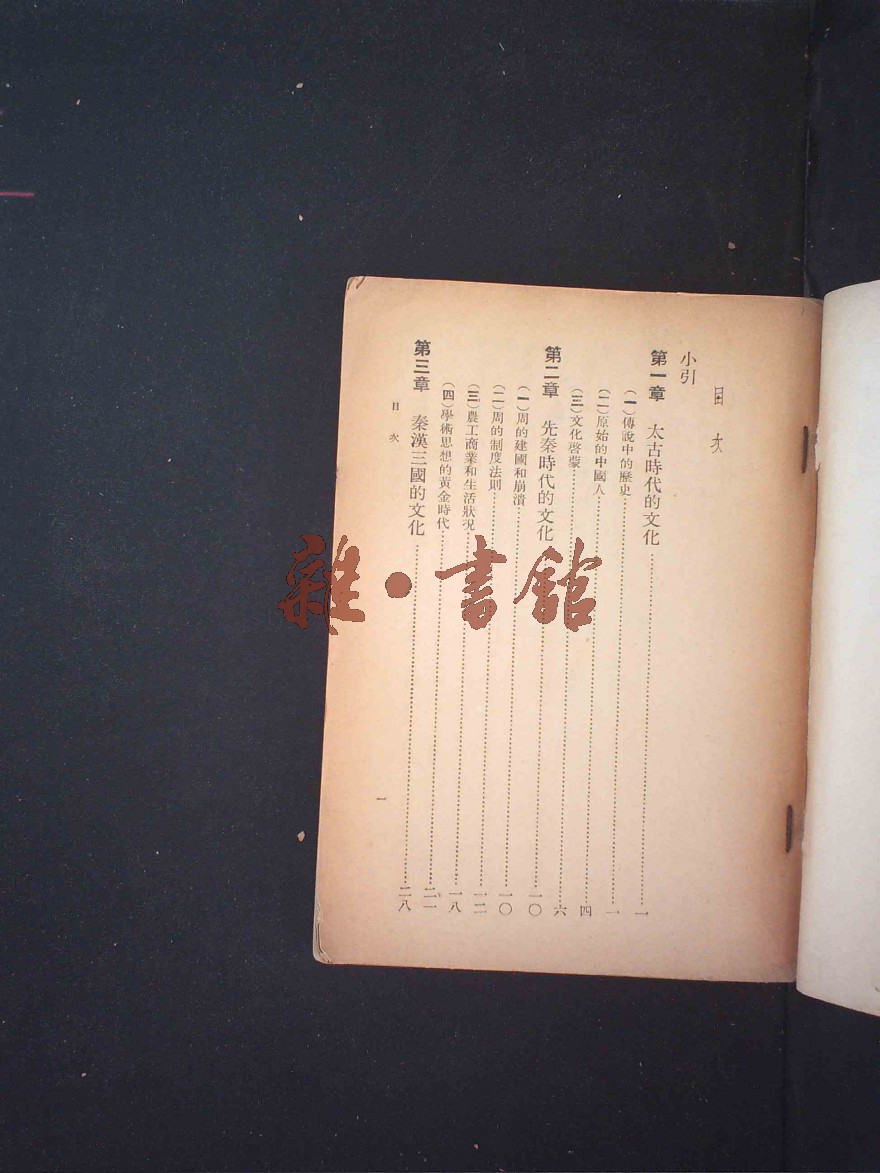 目次
小引
第一章 太古時代的文化……一
(一)傳說中的歷史……一
(二)原始的中國人……四
(三)文化啓蒙……六
第二章 先秦時代的文化……一〇
(一)周的建國和崩潰……一〇
(二)周的制度法則……一二
(三)農工商業和生活狀況……一八
(四)學術思想的黃金時代……二一
第三章 秦漢三國的文化……二八
目次
一
雜·書館